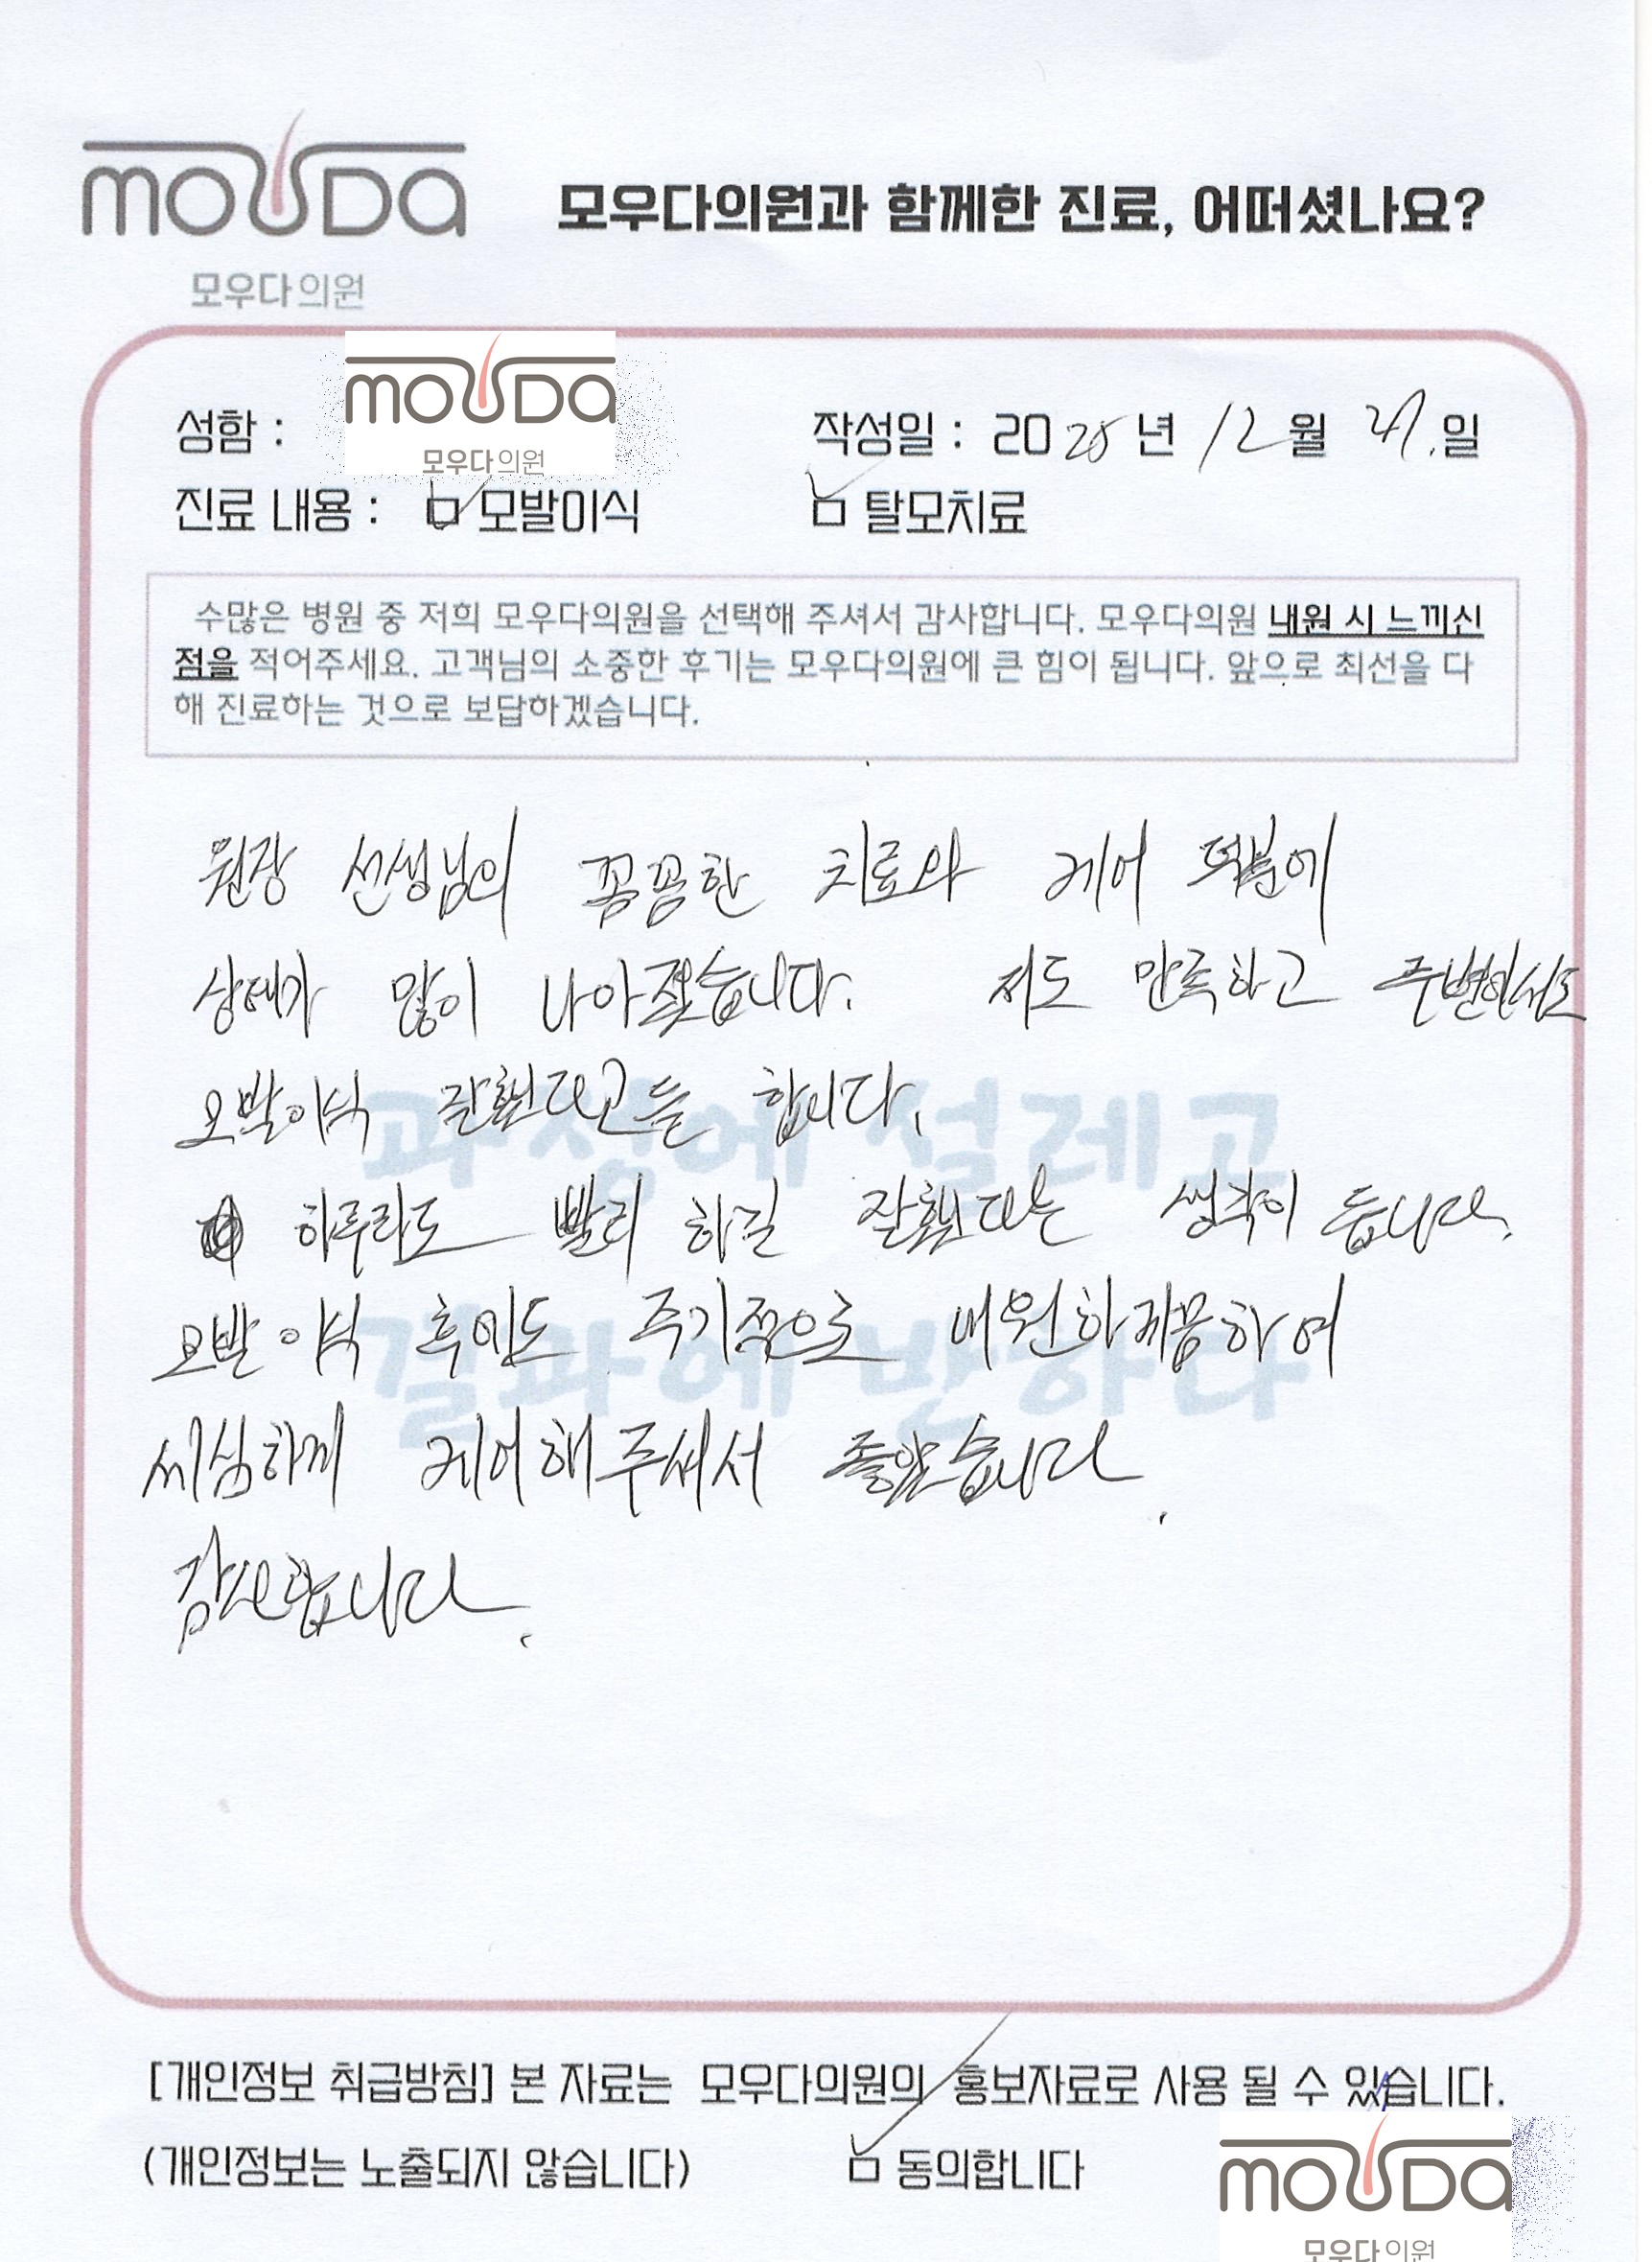 mouda
모우다의원
모우다의원과 함께한 진료, 어떠셨나요?
mouda
모우다의원
성함 :
작성일 : 20 25 년 12 월 27. 일
진료 내용 : 모발이식 탈모치료
수많은 병원 중 저희 모우다의원을 선택해 주셔서 감사합니다. 모우다의원 내원 시 느끼신
점을 적어주세요. 고객님의 소중한 후기는 모우다의원에 큰 힘이 됩니다. 앞으로 최선을 다
해 진료하는 것으로 보답하겠습니다.
원장 선생님의 꼼꼼한 치료와 케어 덕분에
상태가 많이 나아졌습니다. 저도 만족하고 주변에서도
모발이식 잘했다고들 합니다.
하루라도 빨리 하길 잘했다는 생각이 듭니다.
모발이식 후에도 주기적으로 내원하게끔하여
세심하게 케어해주셔서 좋았습니다.
감사합니다.
과정에 설레고
결과에 반하다
[개인정보 취급방침] 본 자료는 모우다의원의 홍보자료로 사용 될 수 있습니다.
(개인정보는 노출되지 않습니다) 동의합니다
mouda
모우다의원